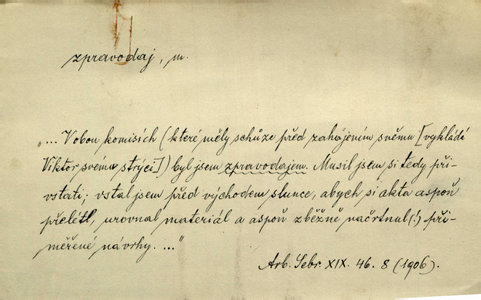 zpravodaj, m.
„... V obou komisích (které měly schůze před zahájením sněmu [vykládá
Viktor svému strýci]) byl jsem zpravodajem. Musil jsem si tedy při-
vstati; vstal jsem před východem slunce, abych si akta aspoň
přečetl, urovnal materiál a aspoň zběžně načrtnul(!) při-
měřené návrhy. ..."
Arb. Sebr. XIX. 46. 8 (1906).